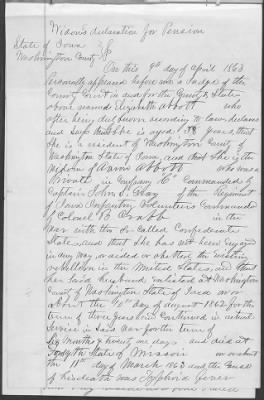 Widow's declaration for Pension
State of Iowa
Washington County } SS
On this 9th day of April 1863
Personally appeared before me a Judge of the
County Court in and for the County & State
above named Elizabeth Abbott who
after being duly sworn according to law declares
and says that she is aged 38 years, that
she is a resident of Washington County
Washington State of Iowa, and that she is the
Widow of Aaron Abbott who was a
Private in Company Commanded by
Captain John S. of the Regiment
of Iowa Infantry Volunteers Commanded
by Colonel B Crabb in the
war with the So Called Confederate
States, and that she has not been engaged
in any way or aided or abetted the existing
rebellion in the United States, and that
her said husband enlisted at Washington
County of Washington State of Iowa on or
about the 10th day of August 1862 for the
term of three years and continued in actual
service in said war for the term of
Six Months & twenty one days and died at
Forsyth State of Missouri on or about
the 11th day of March 1863 and the Cause
of his death was Typhoid fever